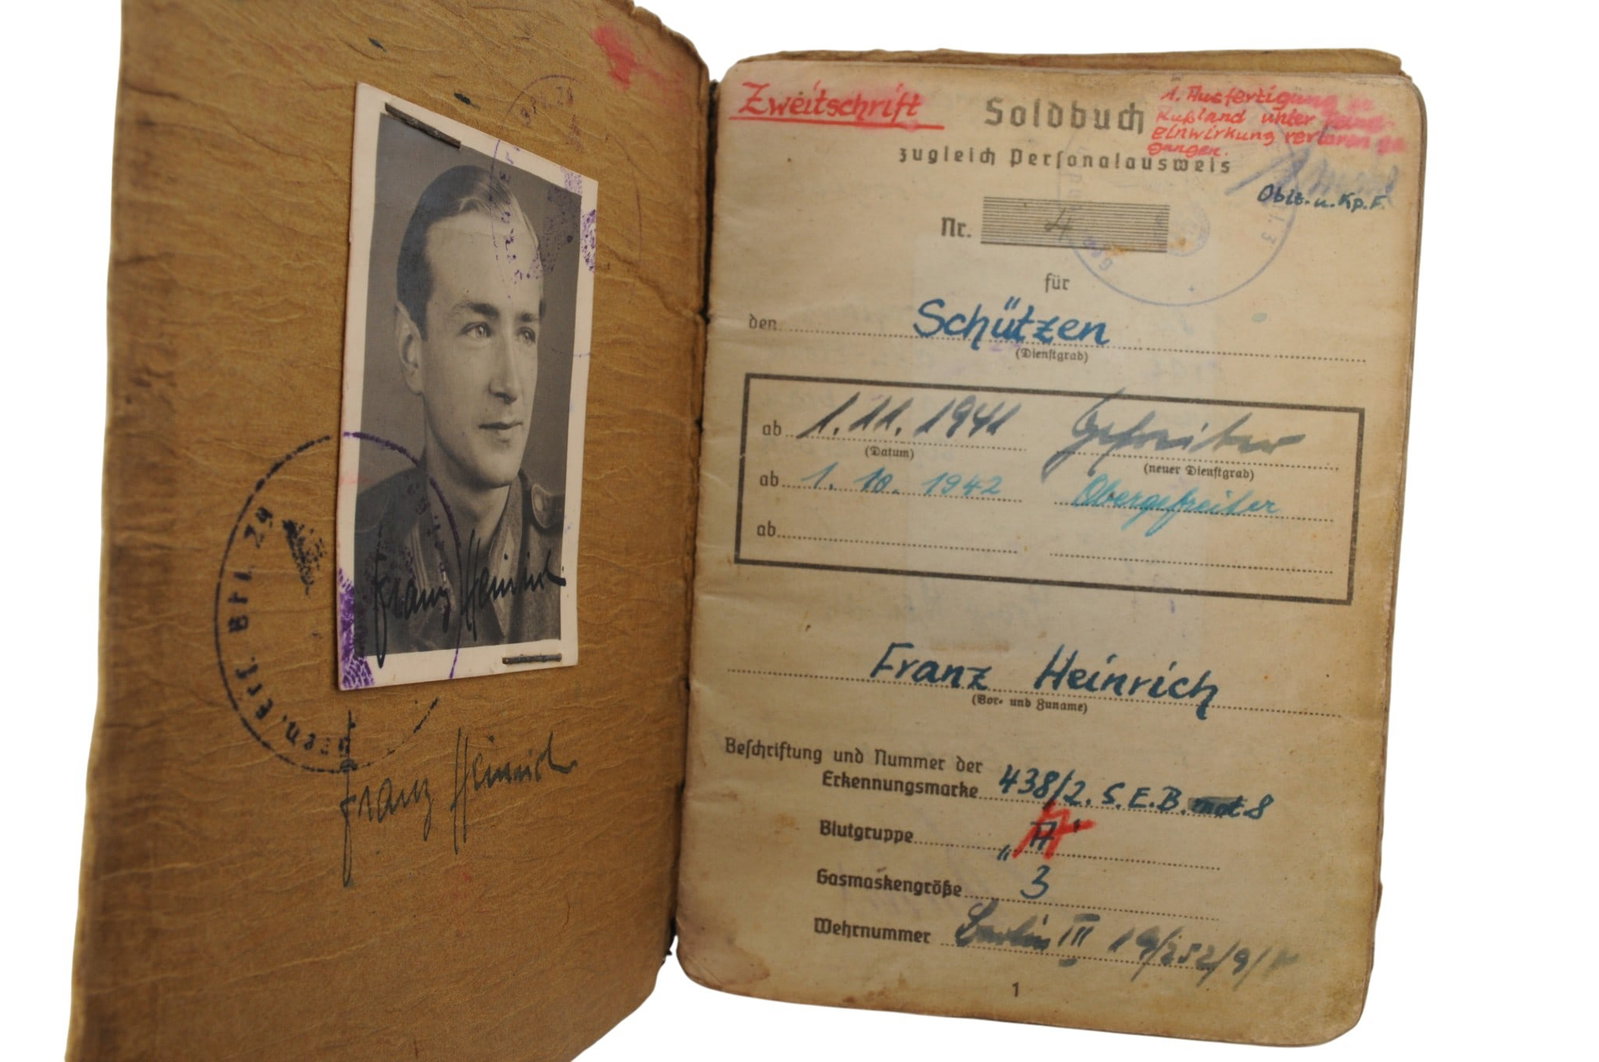 Franz Heinrich
Franz Heinrich
Zweitschrift
1. Ausfertigung
Rußland unter
einwirkung verloren ge
gangen.
Soldbuch
zugleich Personalausweis
Oblt. u. Kp.F.
Nr. 4
für
den Schützen
(Dienstgrad)
ab 1.11.1941 Gefreiter
(Datum) (neuer Dienstgrad)
ab 1. 10. 1942 Obergefreiter
ab
Franz Heinrich
(Vor- und Zuname)
Beschriftung und Nummer der
Erkennungsmarke 438/2. S.E.B. mot 8
Blutgruppe „A“
Gasmaskengröße 3
Wehrnummer Berlin III 19/252/9/
1